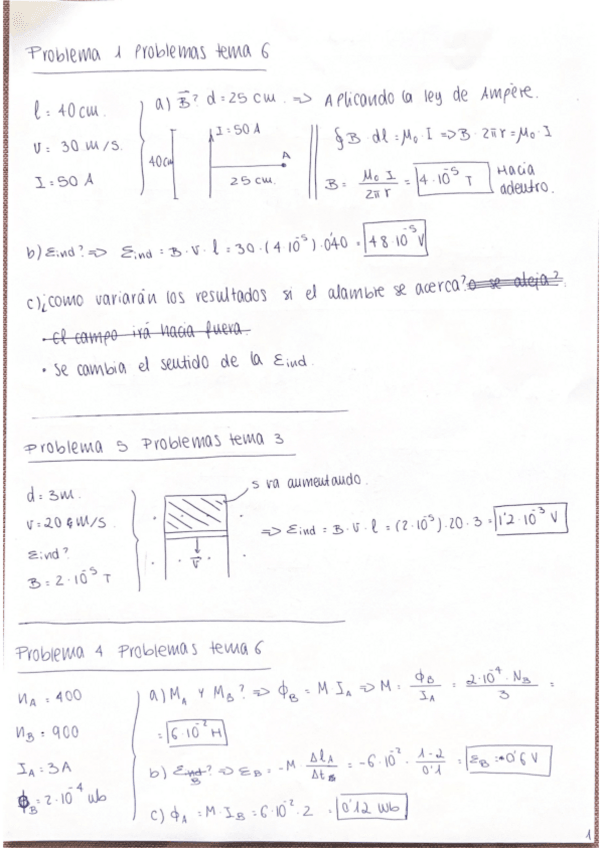 Problema 1 Problemas tema 6
l = 40 cm.
v = 30 m/s.
I = 50 A
a) B⃗? d = 25 cm. => Aplicando la ley de Ampère.
I = 50 A
40cm
A
25 cm.
∮ B · dl = μ₀ · I => B · 2πr = μ₀ · I
B = μ₀ I / 2πr = 4·10⁻⁵ T Hacia adentro.
b) εind? => εind = B · v · l = 30 · (4·10⁻⁵) · 0'40 = 48·10⁻⁵ V
c) ¿como variarán los resultados si el alambre se acerca? o se aleja?
· el campo irá hacia fuera.
· se cambia el sentido de la εind.
Problema 5 Problemas tema 3
d = 3m.
v = 20 m/s.
εind?
B = 2·10⁻⁵ T
s va aumentando.
v⃗
=> εind = B · v · l = (2·10⁻⁵) · 20 · 3 = 1'2·10⁻³ V
Problema 4 Problemas tema 6
nA = 400
nB = 900
IA = 3A
ϕB = 2·10⁻⁴ wb
a) MA y MB? => ϕB = M · IA => M = ϕB / IA = 2·10⁻⁴ · NB / 3 =
= 6·10⁻² H
b) εind? B => εB = -M · ΔIA / Δt = -6·10⁻² · 1-2 / 0'1 = εB = 0'6 V
c) ϕA = M · IB = 6·10⁻² · 2 = 0'12 wb
1